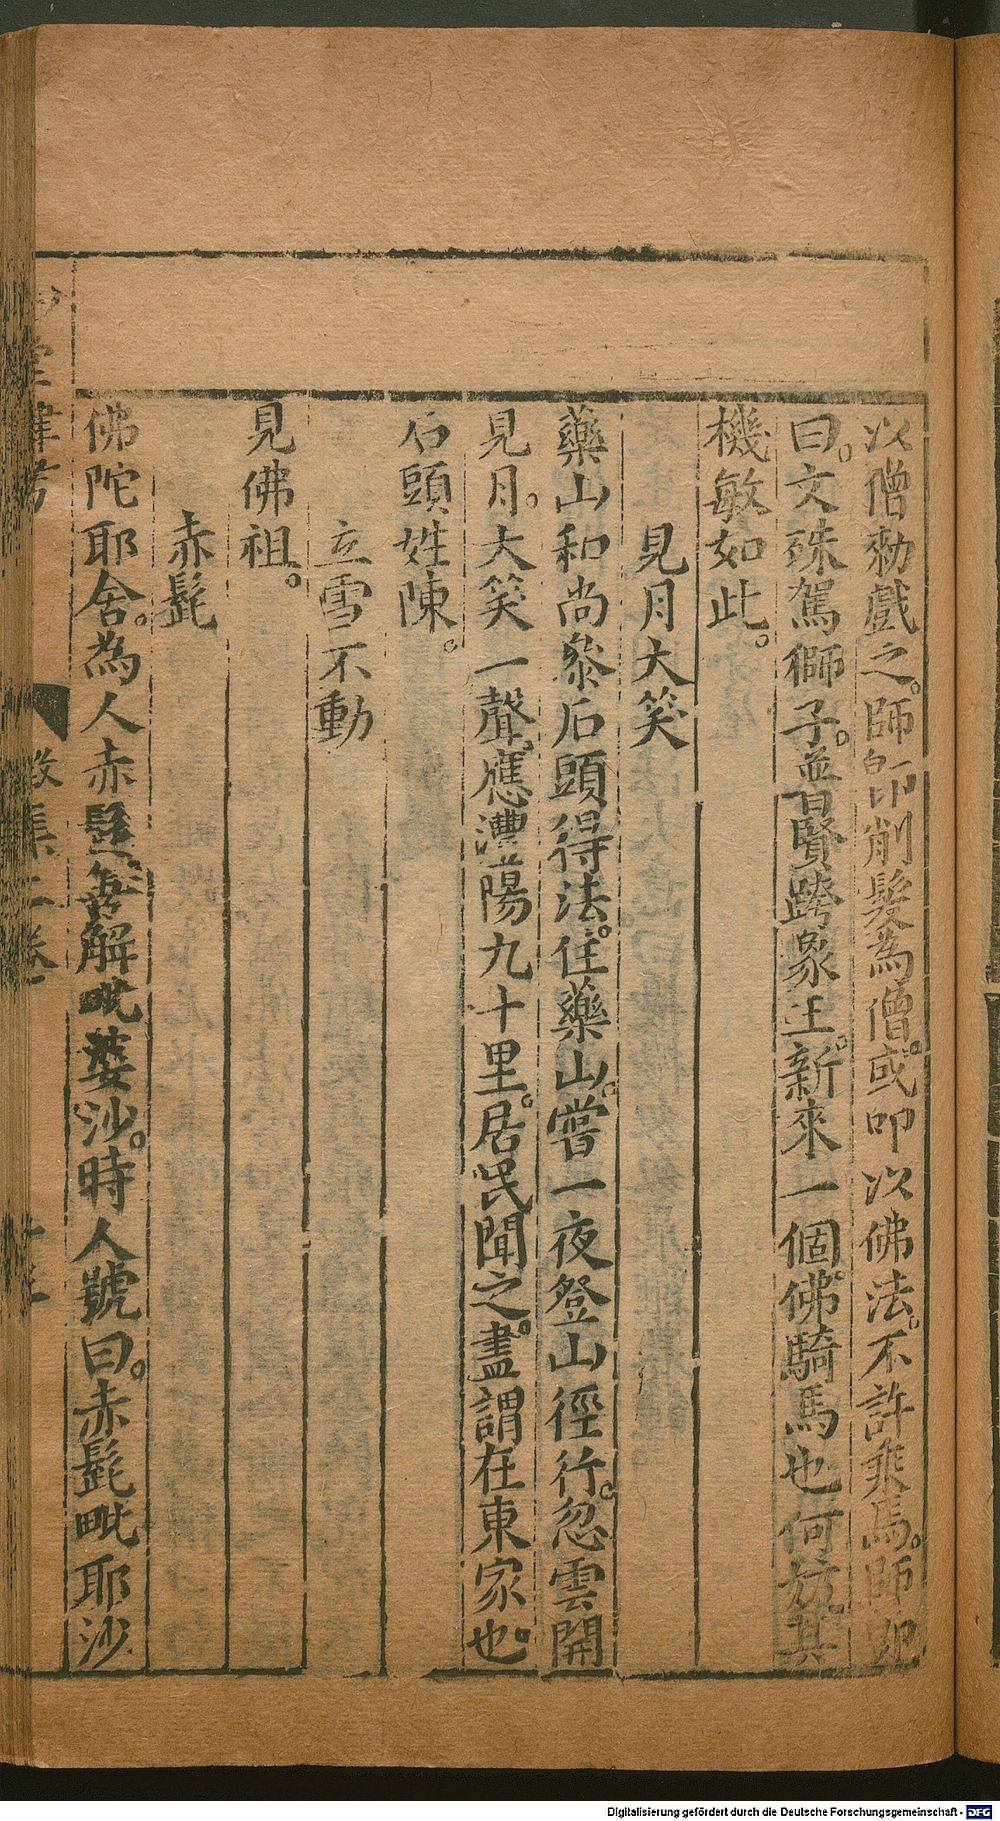 以僧勑戲之。師即削髮為僧。或叩以佛法。不許乘馬。師即
曰。文殊駕獅子。普賢跨象王。新來一個佛。騎馬也何妨其
機敏如此。
見月大笑
藥山和尚參石頭得法。住藥山。嘗一夜登山徑行。忽雲開
見月。大笑一聲。應灃陽九十里。居民聞之。盡謂在東家也。
石頭姓陳。
立雪不動
見佛祖。
赤髭
佛陀耶舍。為人赤髭。善解毗婆沙。時人號曰。赤髭毗耶沙
Digitalisierung gefördert durch die Deutsche Forschungsgemeinschaft - DFG